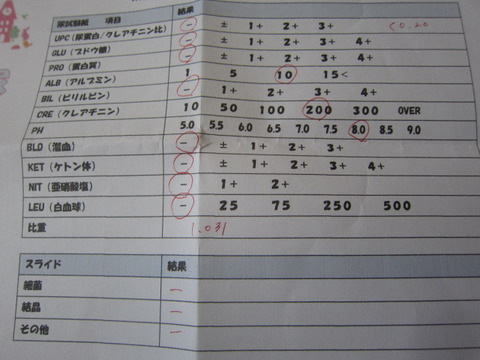 尿試験紙 項目 結果
UPC(尿蛋白/クレアチニン比) - ± 1+ 2+ 3+ <0.20
GLU(ブドウ糖) - ± 1+ 2+ 3+ 4+
PRO(蛋白質) - ± 1+ 2+ 3+ 4+
ALB(アルブミン) 1 5 10 15<
BIL(ビリルビン) - 1+ 2+ 3+ 4+
CRE(クレアチニン) 10 50 100 200 300 OVER
PH 5.0 5.5 6.0 6.5 7.0 7.5 8.0 8.5 9.0
BLD(潜血) - ± 1+ 2+ 3+
KET(ケトン体) - ± 1+ 2+ 3+ 4+
NIT(亜硝酸塩) - 1+ 2+
LEU(白血球) - 25 75 250 500
比重 1.031
スライド 結果
細菌 -
結晶 -
その他 -